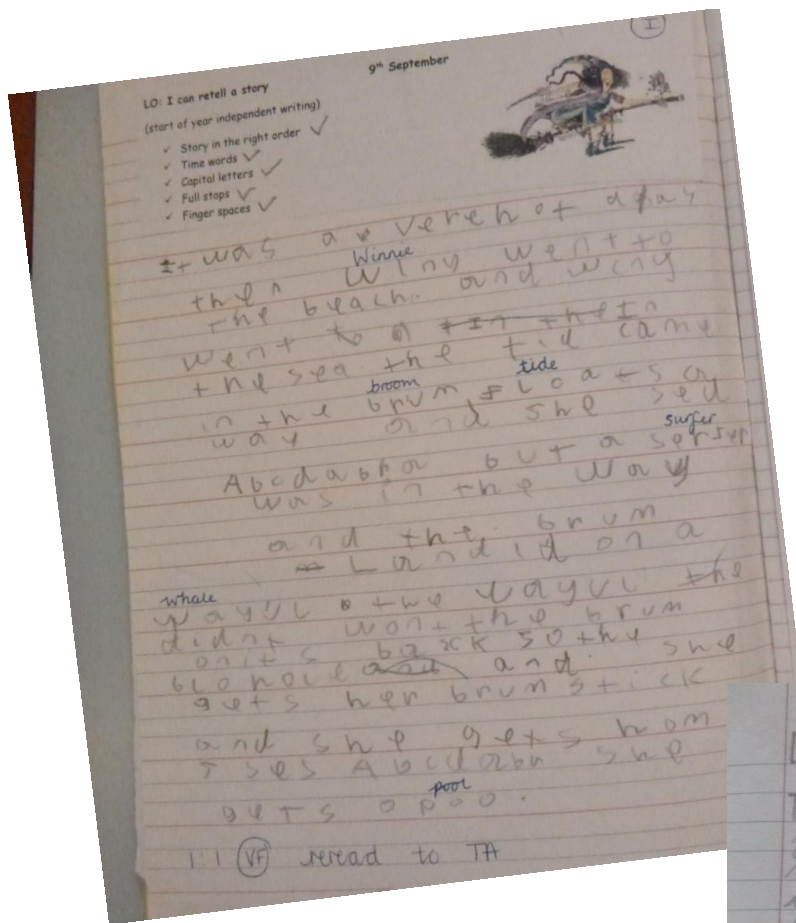 I
9th September
LO: I can retell a story
(start of year independent writing)
✓ Story in the right order ✓
✓ Time words ✓
✓ Capital letters ✓
✓ Full stops ✓
✓ Finger spaces ✓
It was a vereh ot
Winnie
then winy went to
the beach. and winy
went to
the sea the tid came
broom tide
in the brum floats a
way and she sed
surfer
Abcdabra but a
was in the way
and the brum
Landid on a
whale
wayul the wayul the
didnt wont the brum
on its back so the
and she
gets her brum stick
and she gets hom
ses Abcdabr she
pool
gets a poo.
1:1 VF reread to TA